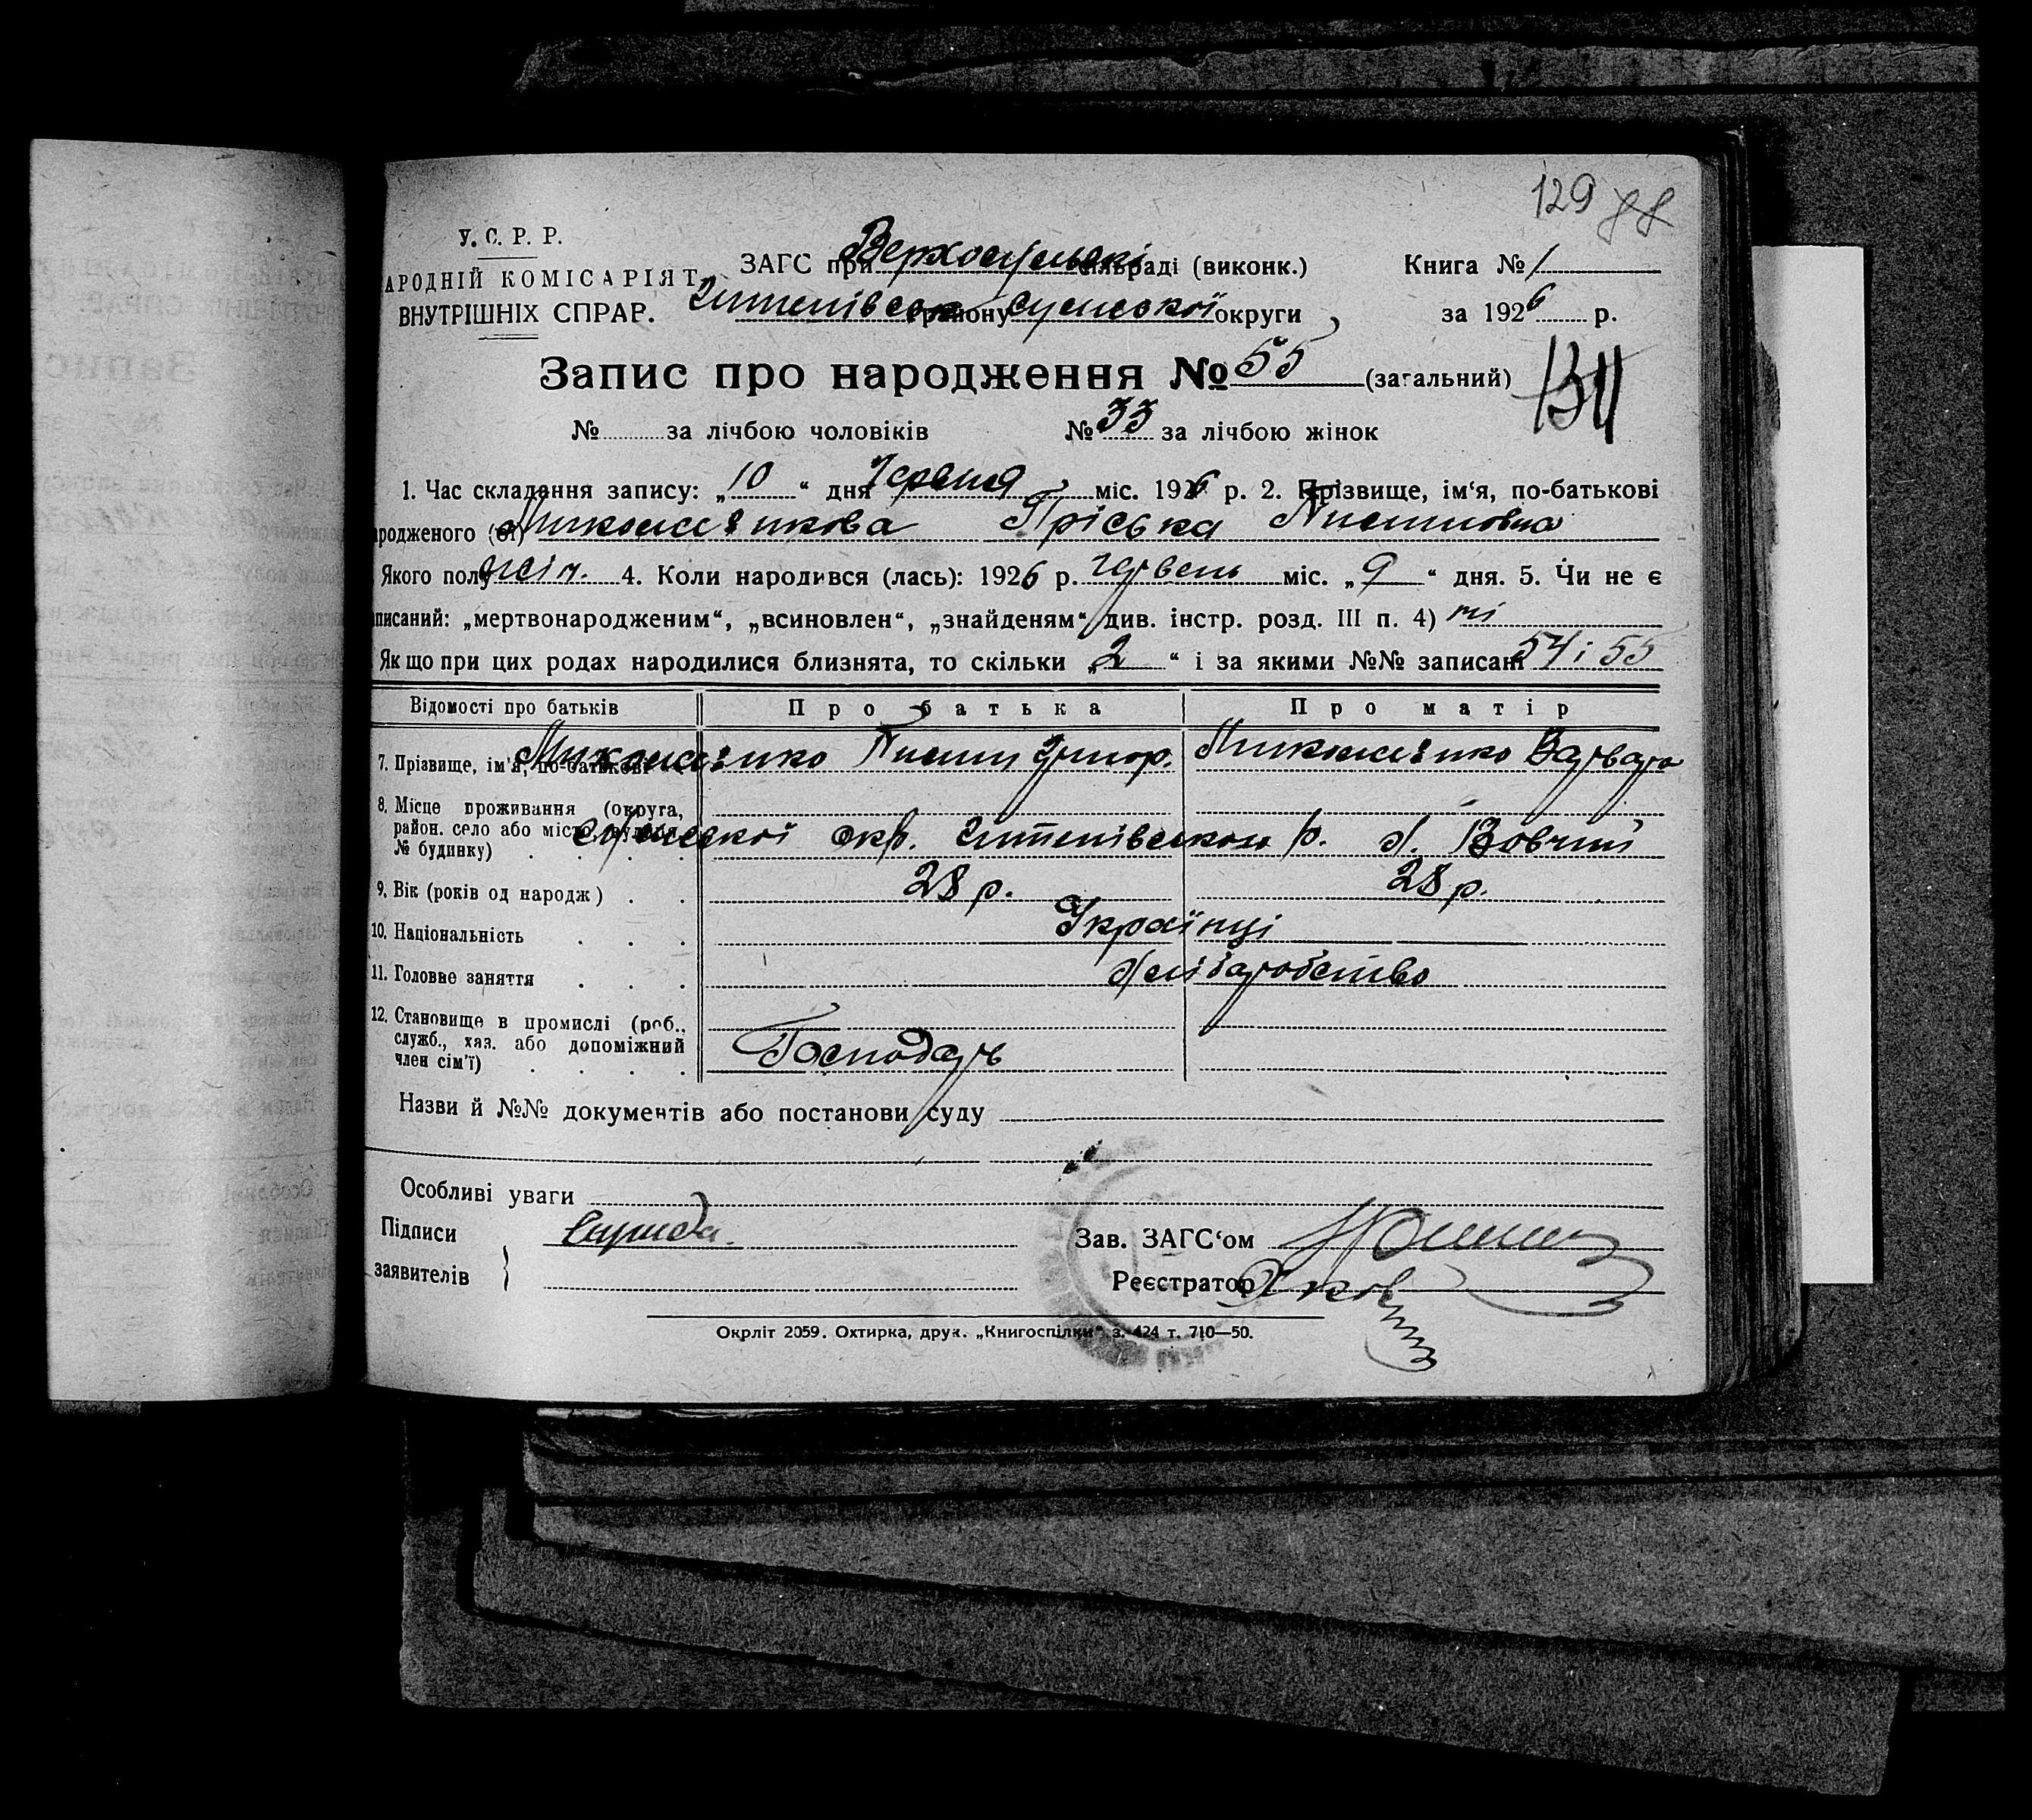 129
У. С. Р. Р.
АРОДНІЙ КОМІСАРІЯТ
ВНУТРІШНІХ СПРАВ.
ЗАГС при Верхосульські сільраді (виконк.)
Штепівськ району Сумської округи
Книга № 1
за 1926 р.
Запис про народження № 55 (загальний)
№ за лічбою чоловіків № 33 за лічбою жінок
1. Час складання запису: „10“ дня Червня міс. 1926 р. 2. Прізвище, ім'я, по-батькові
родженого (ої) Пріська
Якого полу жін. 4. Коли народився (лась): 1926 р. червень міс. „9“ дня. 5. Чи не є
писаний: „мертвонародженим“, „всиновлен“, „знайденям“ див. інстр. розд. III п. 4) ні
Якщо при цих родах народилися близнята, то скільки „2“ і за якими №№ записані 54 і 55
Відомості про батьків Про батька Про матір
7. Прізвище, ім'я, по-батькові Григор. Варвара
8. Місце проживання (округа,
район. село або місто, вулиця,
№ будинку) Сумської окр. Штепівського р. х. Вовчий
9. Вік (років од народж) 28 р. 28 р.
10. Національність Українці
11. Головне заняття Хліборобство
12. Становище в промислі (роб.,
служб., хаз. або допоміжний
член сім'ї) Господарь
Назви й №№ документів або постанови суду
Особливі уваги
Підписи
заявителів
Зав. ЗАГС'ом
Реєстратор
Окрліт 2059. Охтирка, друк. „Книгоспілки“ з. 424 т. 710—50.